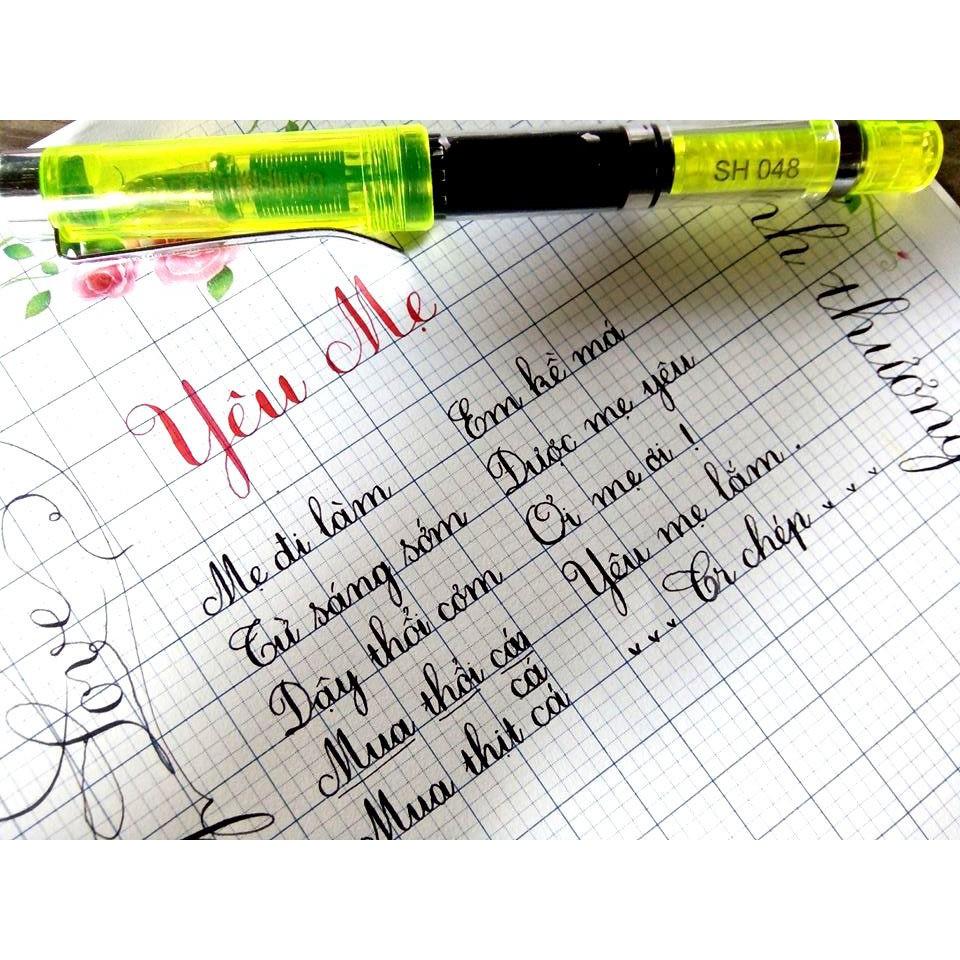 SH 048
Yêu Mẹ
Mẹ đi làm
Từ sáng sớm
Dậy thổi cơm
Mua thổi cá
cá
Mua thịt cá
Em kề má
Được mẹ yêu
Ơi mẹ ơi !
Yêu mẹ lắm .
Tr chép
thương